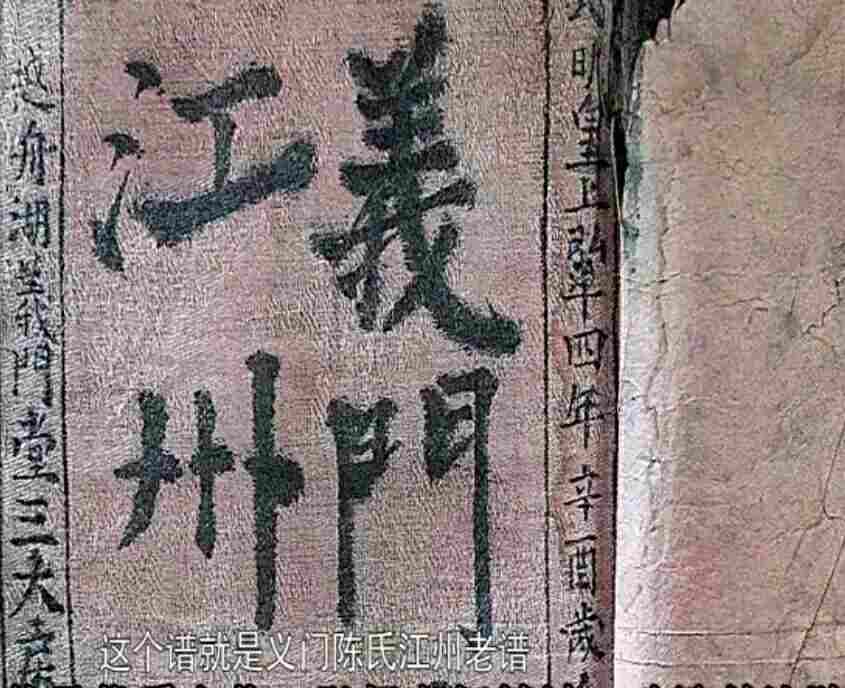 明皇上弘四年辛酉歲
義門
江州
舟湖義門堂三大
这个谱就是义门陈氏江州老谱